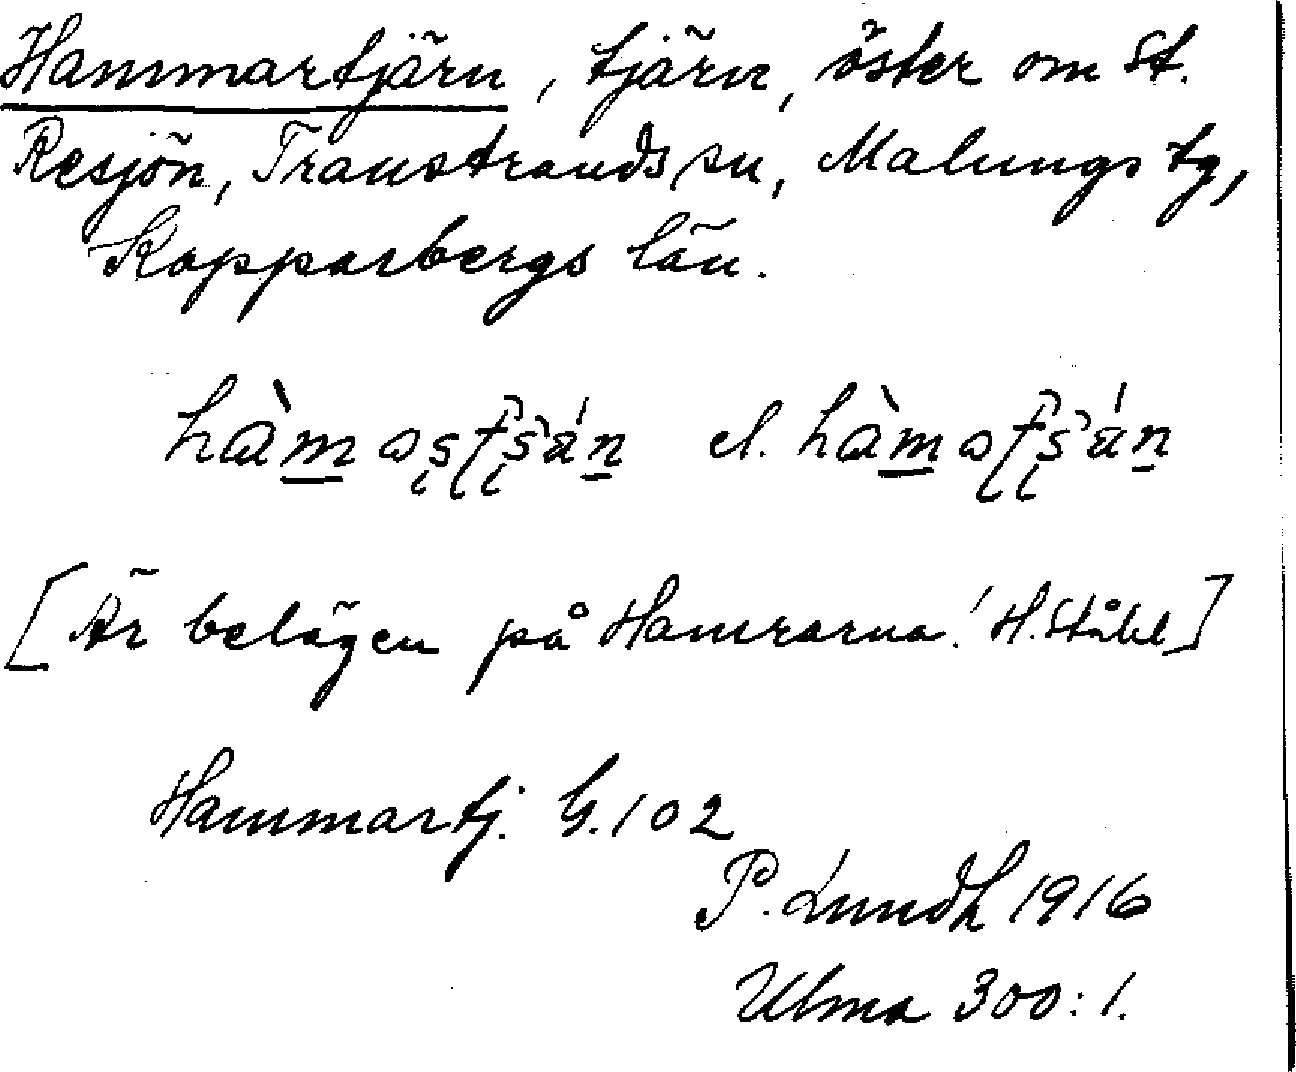 Hammartjärn, tjärn, öster om St.
Resjön, Transtrands sn, Malungs tg,
Kopparbergs län.
el.
[Är belägen på Hamrarna! H. Ståhl]
Hammartj. G. 102
P. Lundh 1916
Ulma 300:1.